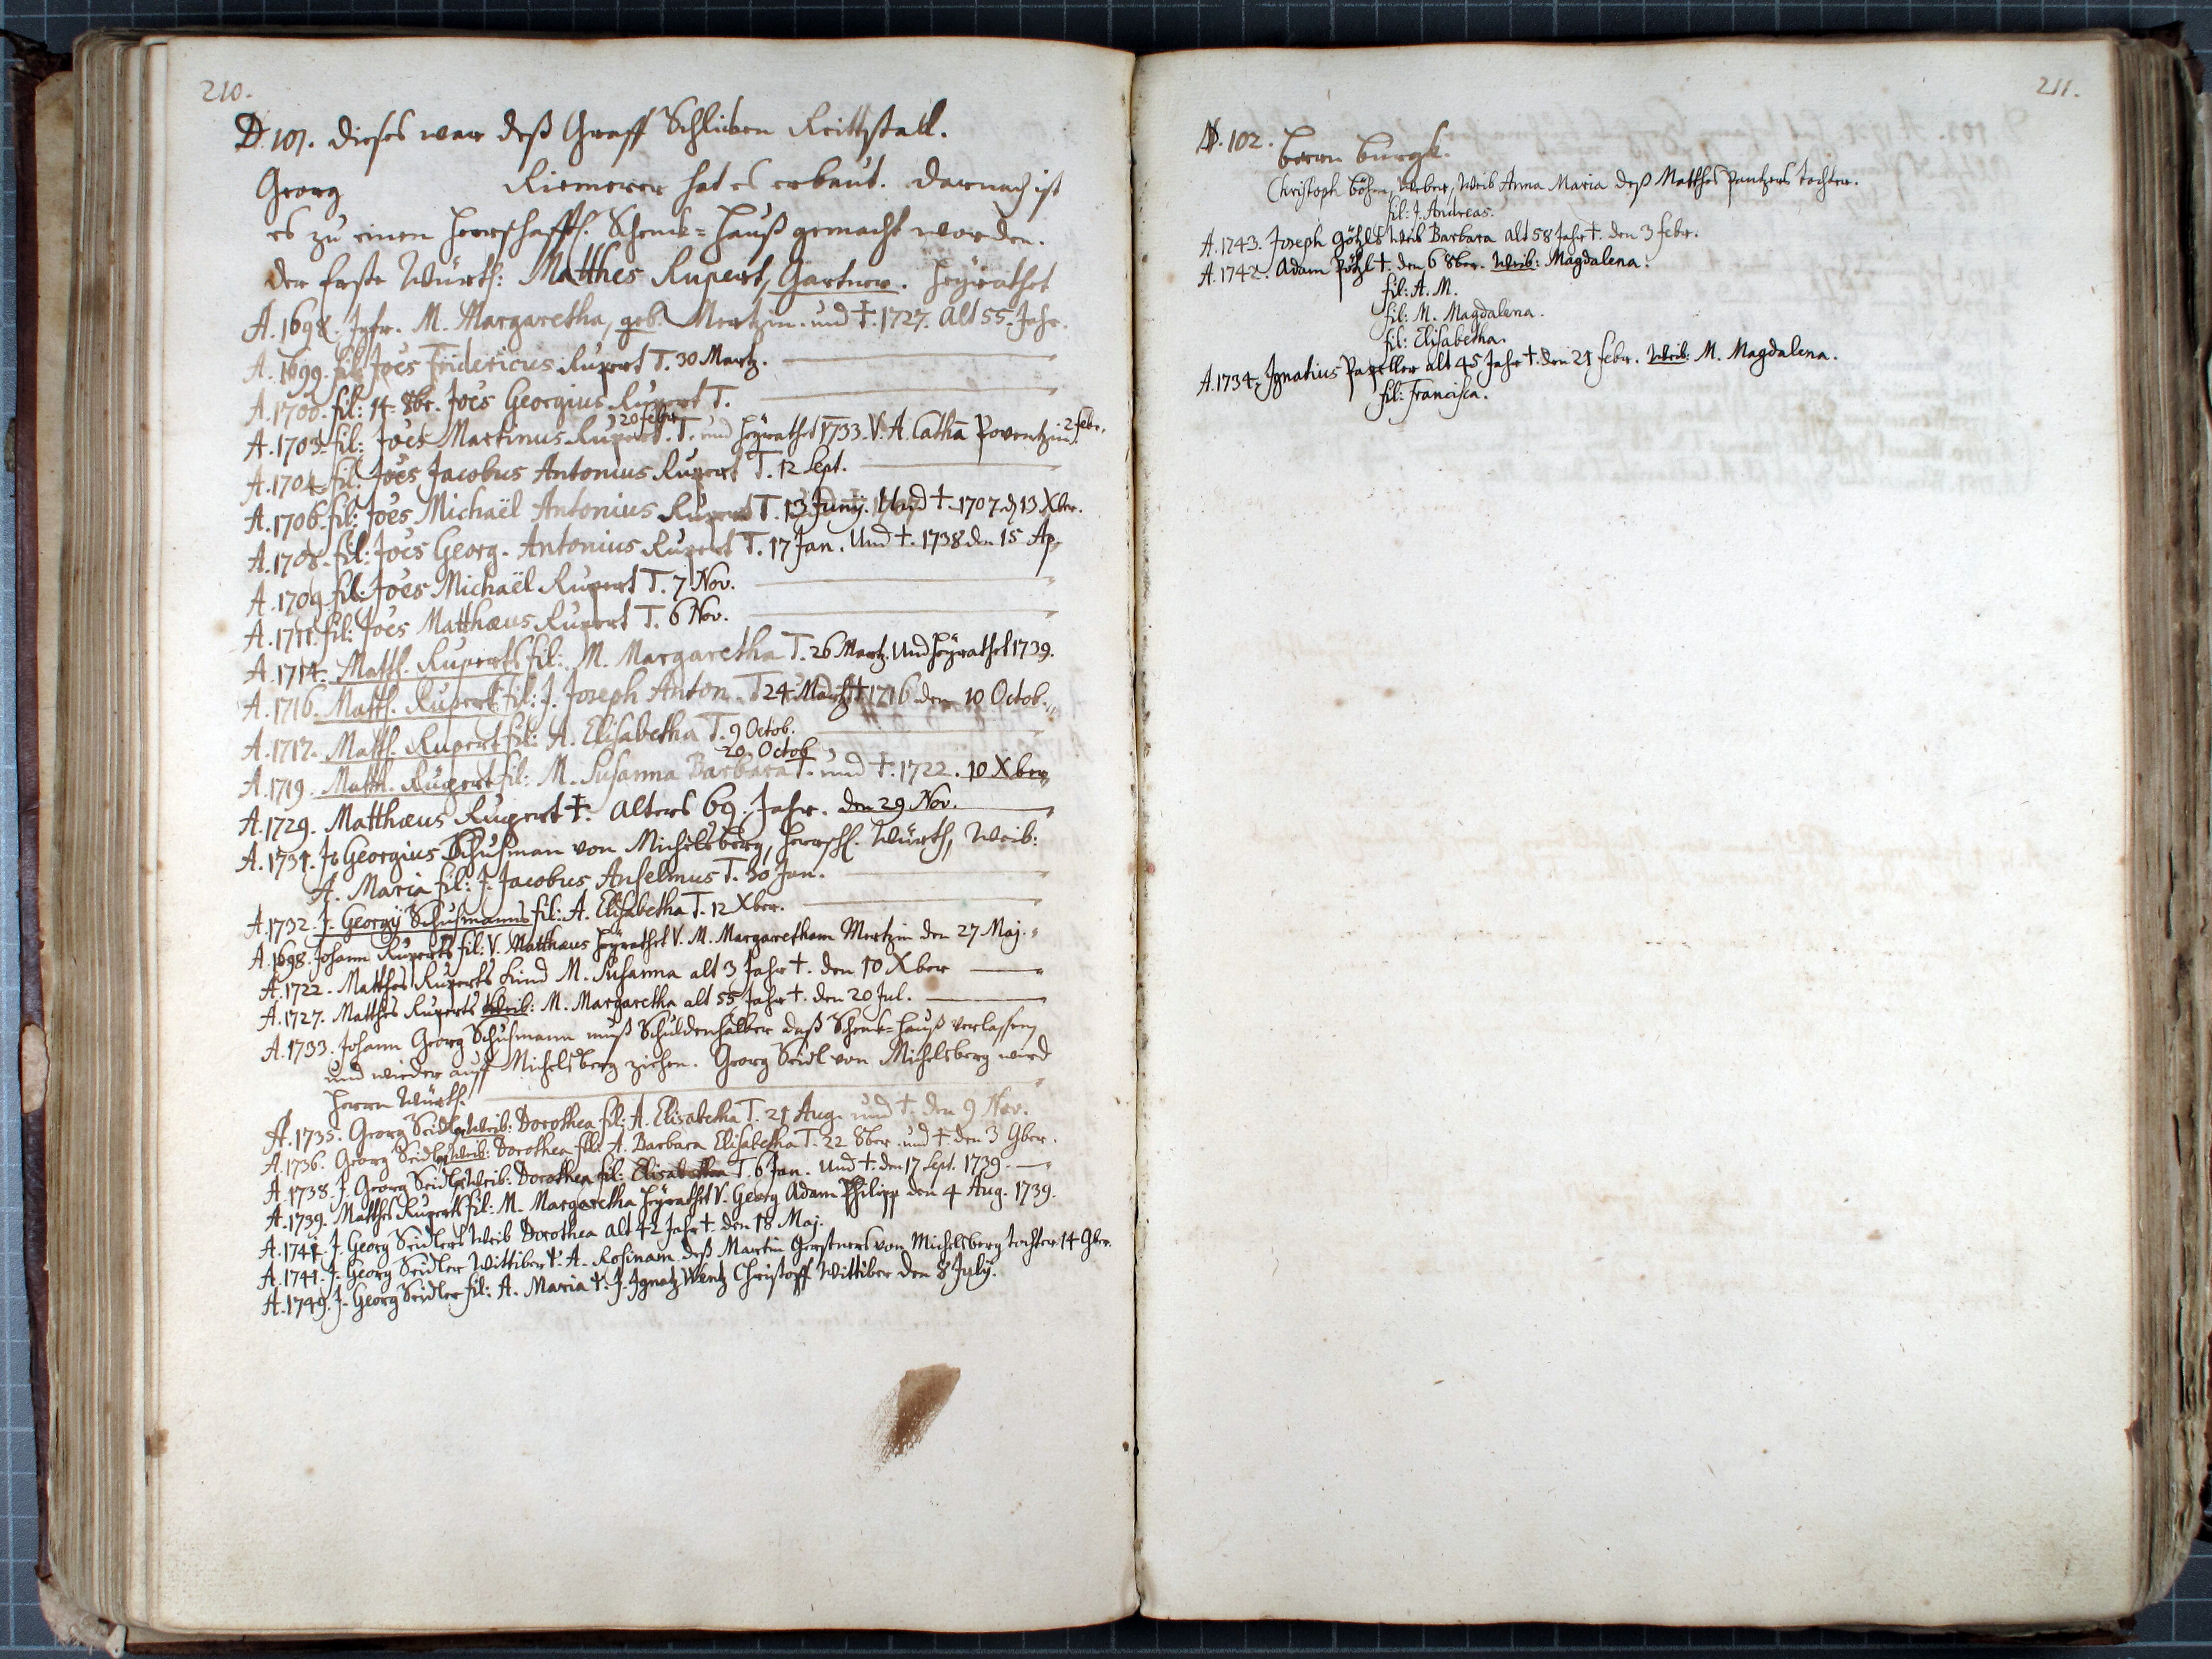 210.
D. 101. Dieses war deß Graff Schlieben Reittstall.
Georg Riemerer hat es erbaut. Darnach ist
es zu einen Herrschafftl. Schenck=Hauß gemacht worden.
Der Erste Würth: Matthes Rupert, Gartner. Heÿrathet
A. 1698. Jgfr. M. Margaretha, geb. Mertzin. und †. 1727. alt 55. Jahr.
A. 1699. fil: Joës Fridericus Rupert T. 30 Martz.
A. 1700. fil: 14. 8br. Joës Georgius Rupert T.
A. 1703. fil: Joës Martinus Rupert. T. 20 febr. und Heÿrathet 1733. V. A. Catha Poventzin 2 febr.
A. 1704. fil: Joës Jacobus Antonius Rupert T. 12 Sept.
A. 1706. fil: Joës Michaël Antonius Rupert T. 13 Junÿ. Und †. 1707. d 13 Xber.
A. 1708. fil: Joës Georg. Antonius Rupert T. 17 Jan. Und †. 1738 den 15 Ap.
A. 1709. fil: Joës Michaël Rupert T. 7 Nov.
A. 1711. fil: Joës Matthæus Rupert T. 6 Nov.
A. 1714. Matth. Ruperts fil: M. Margaretha T. 26 Martz. Und Heÿrathet 1739.
A. 1716. Matth. Rupert fil: J. Joseph Anton. T 24 Martz † 1716 den 10 Octob.
A. 1717. Matth. Rupert fil: A. Elisabetha T. 9 Octob.
A. 1719. Matth. Rupert fil: M. Susanna Barbara T. 20. Octob und †. 1722. 10 Xber
A. 1729. Matthæus Rupert †. Alters 69. Jahr. den 29 Nov.
A. 1731. J. Georgius Schusman von Michelsberg, Herrschl. Würth, Weib:
A. Maria fil: J. Jacobus Anselmus T. 30 Jan.
A. 1732. J. Georgÿ Schusmanns fil: A. Elisabetha T. 12 Xber.
A. 1698. Johann Ruperts fil: V. Matthæus Heÿrathet V. M. Margaretham Mertzin den 27 Maj.
A. 1722. Matthes Ruperts Kind M. Susanna alt 3 Jahr †. den 10 Xber
A. 1727. Matthes Ruperts Weib: M. Margaretha alt 55 Jahr †. den 20 Jul.
A. 1733. Johann Georg Schusmann muß Schuldenhalber daß Schenk=Hauß verlassen,
und wieder auff Michelsberg ziehen. Georg Seidl von Michelsberg wird
Herrn Würth.
A. 1735. Georg Seidler, Weib: Dorothea fil: A. Elisabetha T. 21 Aug. und †. den 9 Nov.
A. 1736. Georg Seidler, Weib: Dorothea fil: A. Barbara Elisabetha T. 22 8ber. und †. den 3 9ber.
A. 1738. J. Georg Seidler Weib: Dorothea fil: Elisabetha T. 6 Jan. Und †. den 17 Sept. 1739.
A. 1739. Matthes Ruperts fil: M. Margaretha Heÿrathet V. Georg Adam Philipp den 4 Aug. 1739.
A. 1741. J. Georg Seidlers Weib Dorothea alt 42 Jahr †. den 18 Maj.
A. 1741. J. Georg Seidler Wittiber A. Rosinam deß Martin Gerstners von Michelsberg tochter 14 9ber.
A. 1749. J. Georg Seidler fil: A. Maria J. Ignatz Wentz Christoff Wittiber den 8 Julÿ.
211.
N. 102. Herrn Burgk.
Christoph Böhm, Weber, Weib Anna Maria deß Matthes Pantzers tochter.
fil: J. Andreas.
A. 1743. Joseph Götzls Weib Barbara alt 58 Jahr †. den 3 febr.
A. 1742. Adam Pötzl †. den 6 8ber. Weib: Magdalena.
fil: A. M.
fil: M. Magdalena.
fil: Elisabetha.
A. 1734. Ignatius Papeller alt 45 Jahr †. den 21 febr. Weib: M. Magdalena.
fil: Francisca.